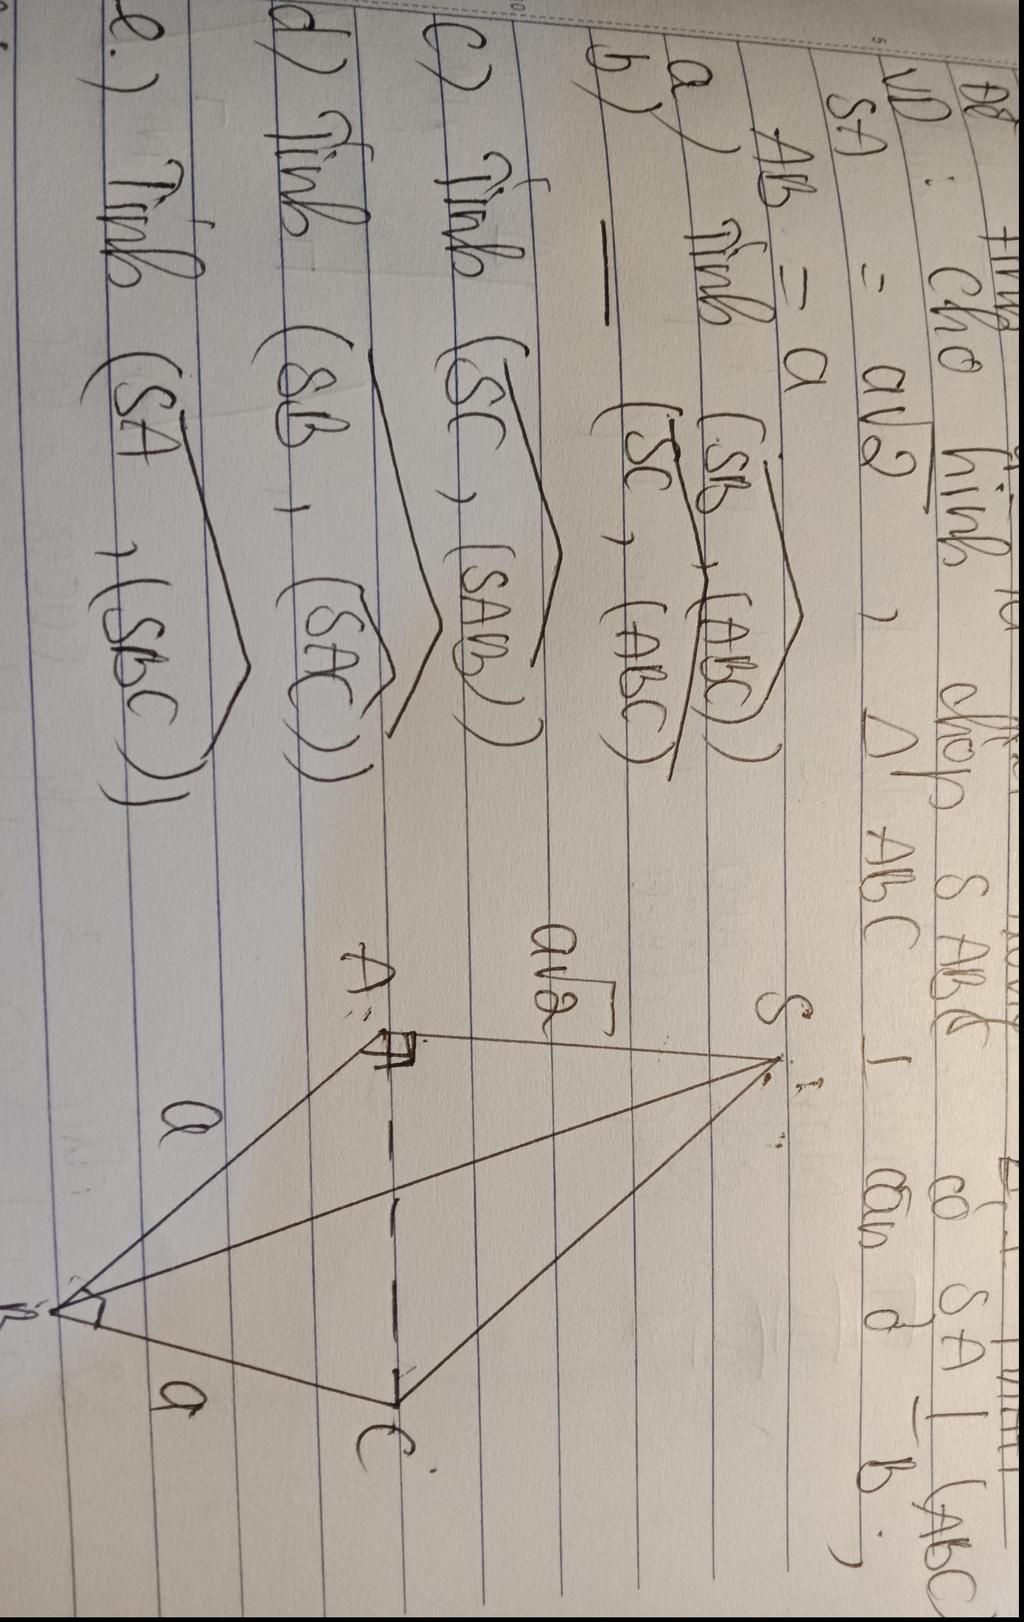 VD : Cho hình chóp SABC có SA ⊥ (ABC
SA = a√2 , Δ ABC ⊥ cân ở B ,
AB = a
a) Tính (SB , (ABC))
b) — (SC , (ABC)
c) Tính (SC , (SAB))
d) Tính (SB , (SAC))
e.) Tính (SA , (SBC))
S
a√2
A
C
a
a
B